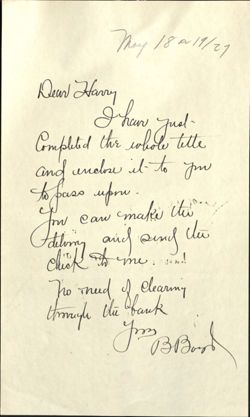 May 18 or 19/27
Dear Harry
I have just
Completed the whole title
and enclose it to you
to pass upon.
You can make the
delivery and send the
check to me.
No need of clearing
through the bank
Yours
B Boyd